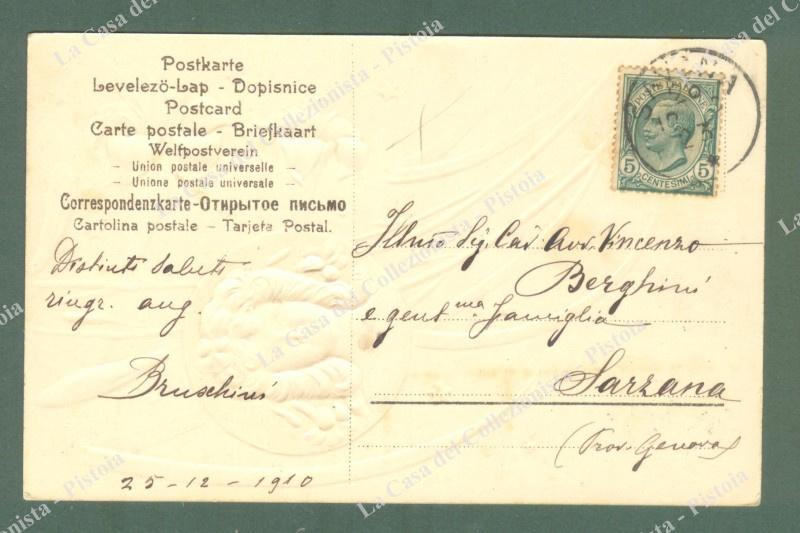 Postkarte
Levelezö-Lap - Dopisnice
Postcard
Carte postale - Briefkaart
Weltpostverein
- Union postale universelle -
- Unione postale universale -
Correspondenzkarte-Открытое письмо
Cartolina postale - Tarjeta Postal.
POSTE ITALIANE
5 5
CENTESINI
Distinti saluti
ringr. aug.
Bruschini
25-12-1910
Illmo Sig. Cav. Avv. Vincenzo
Berghini
e gent.ma famiglia
Sarzana
(Prov. Genova)
La Casa del Collezionista - Pistoia